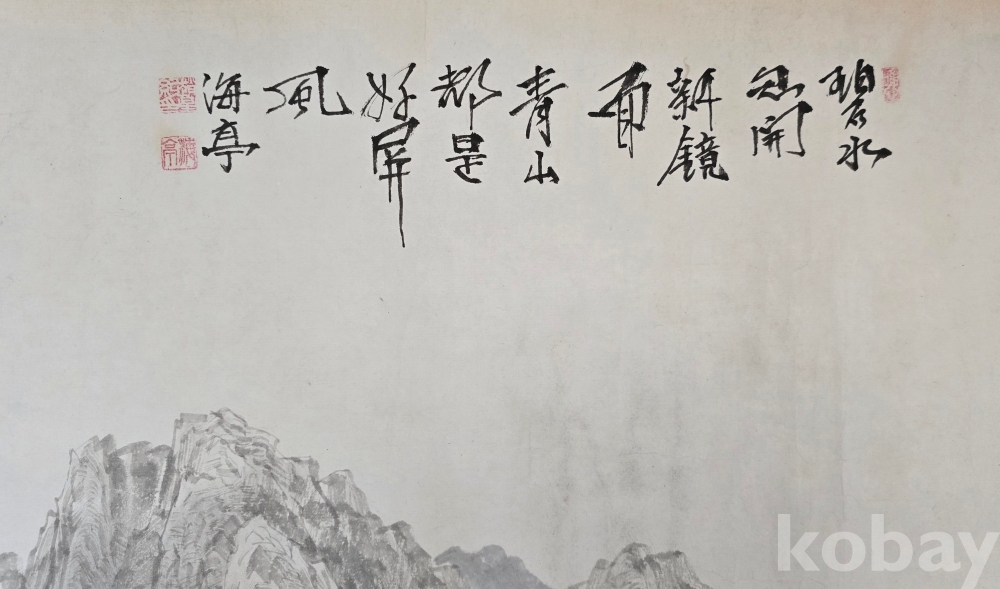 碧水
忽開
新鏡
面
青山
都是
好屏
風
海亭
kobay